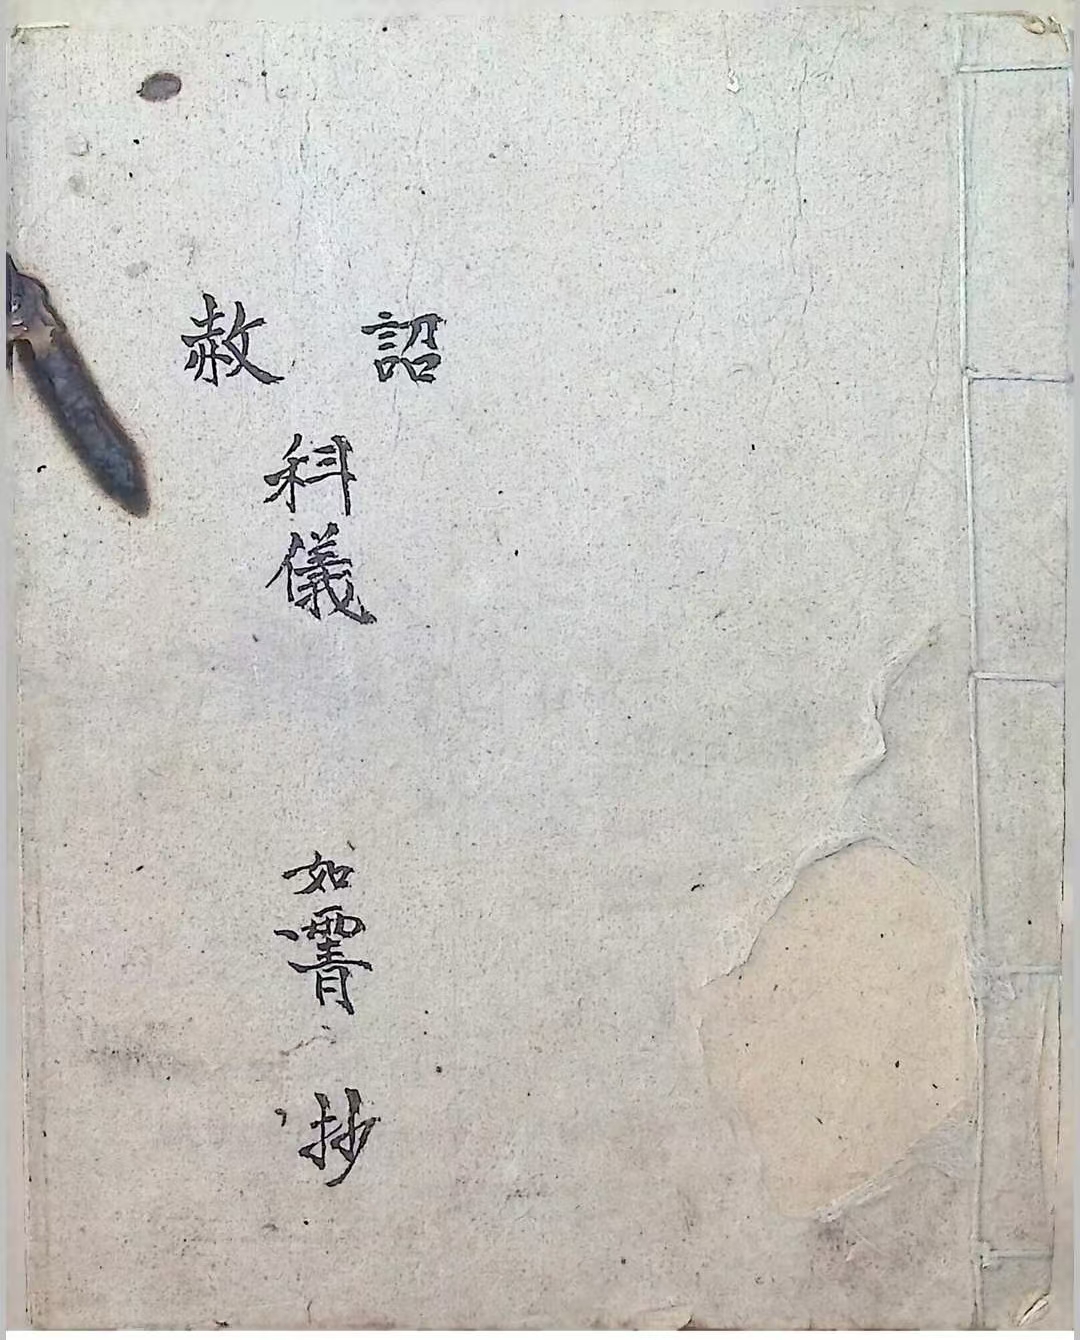 詔赦
科儀
如 抄